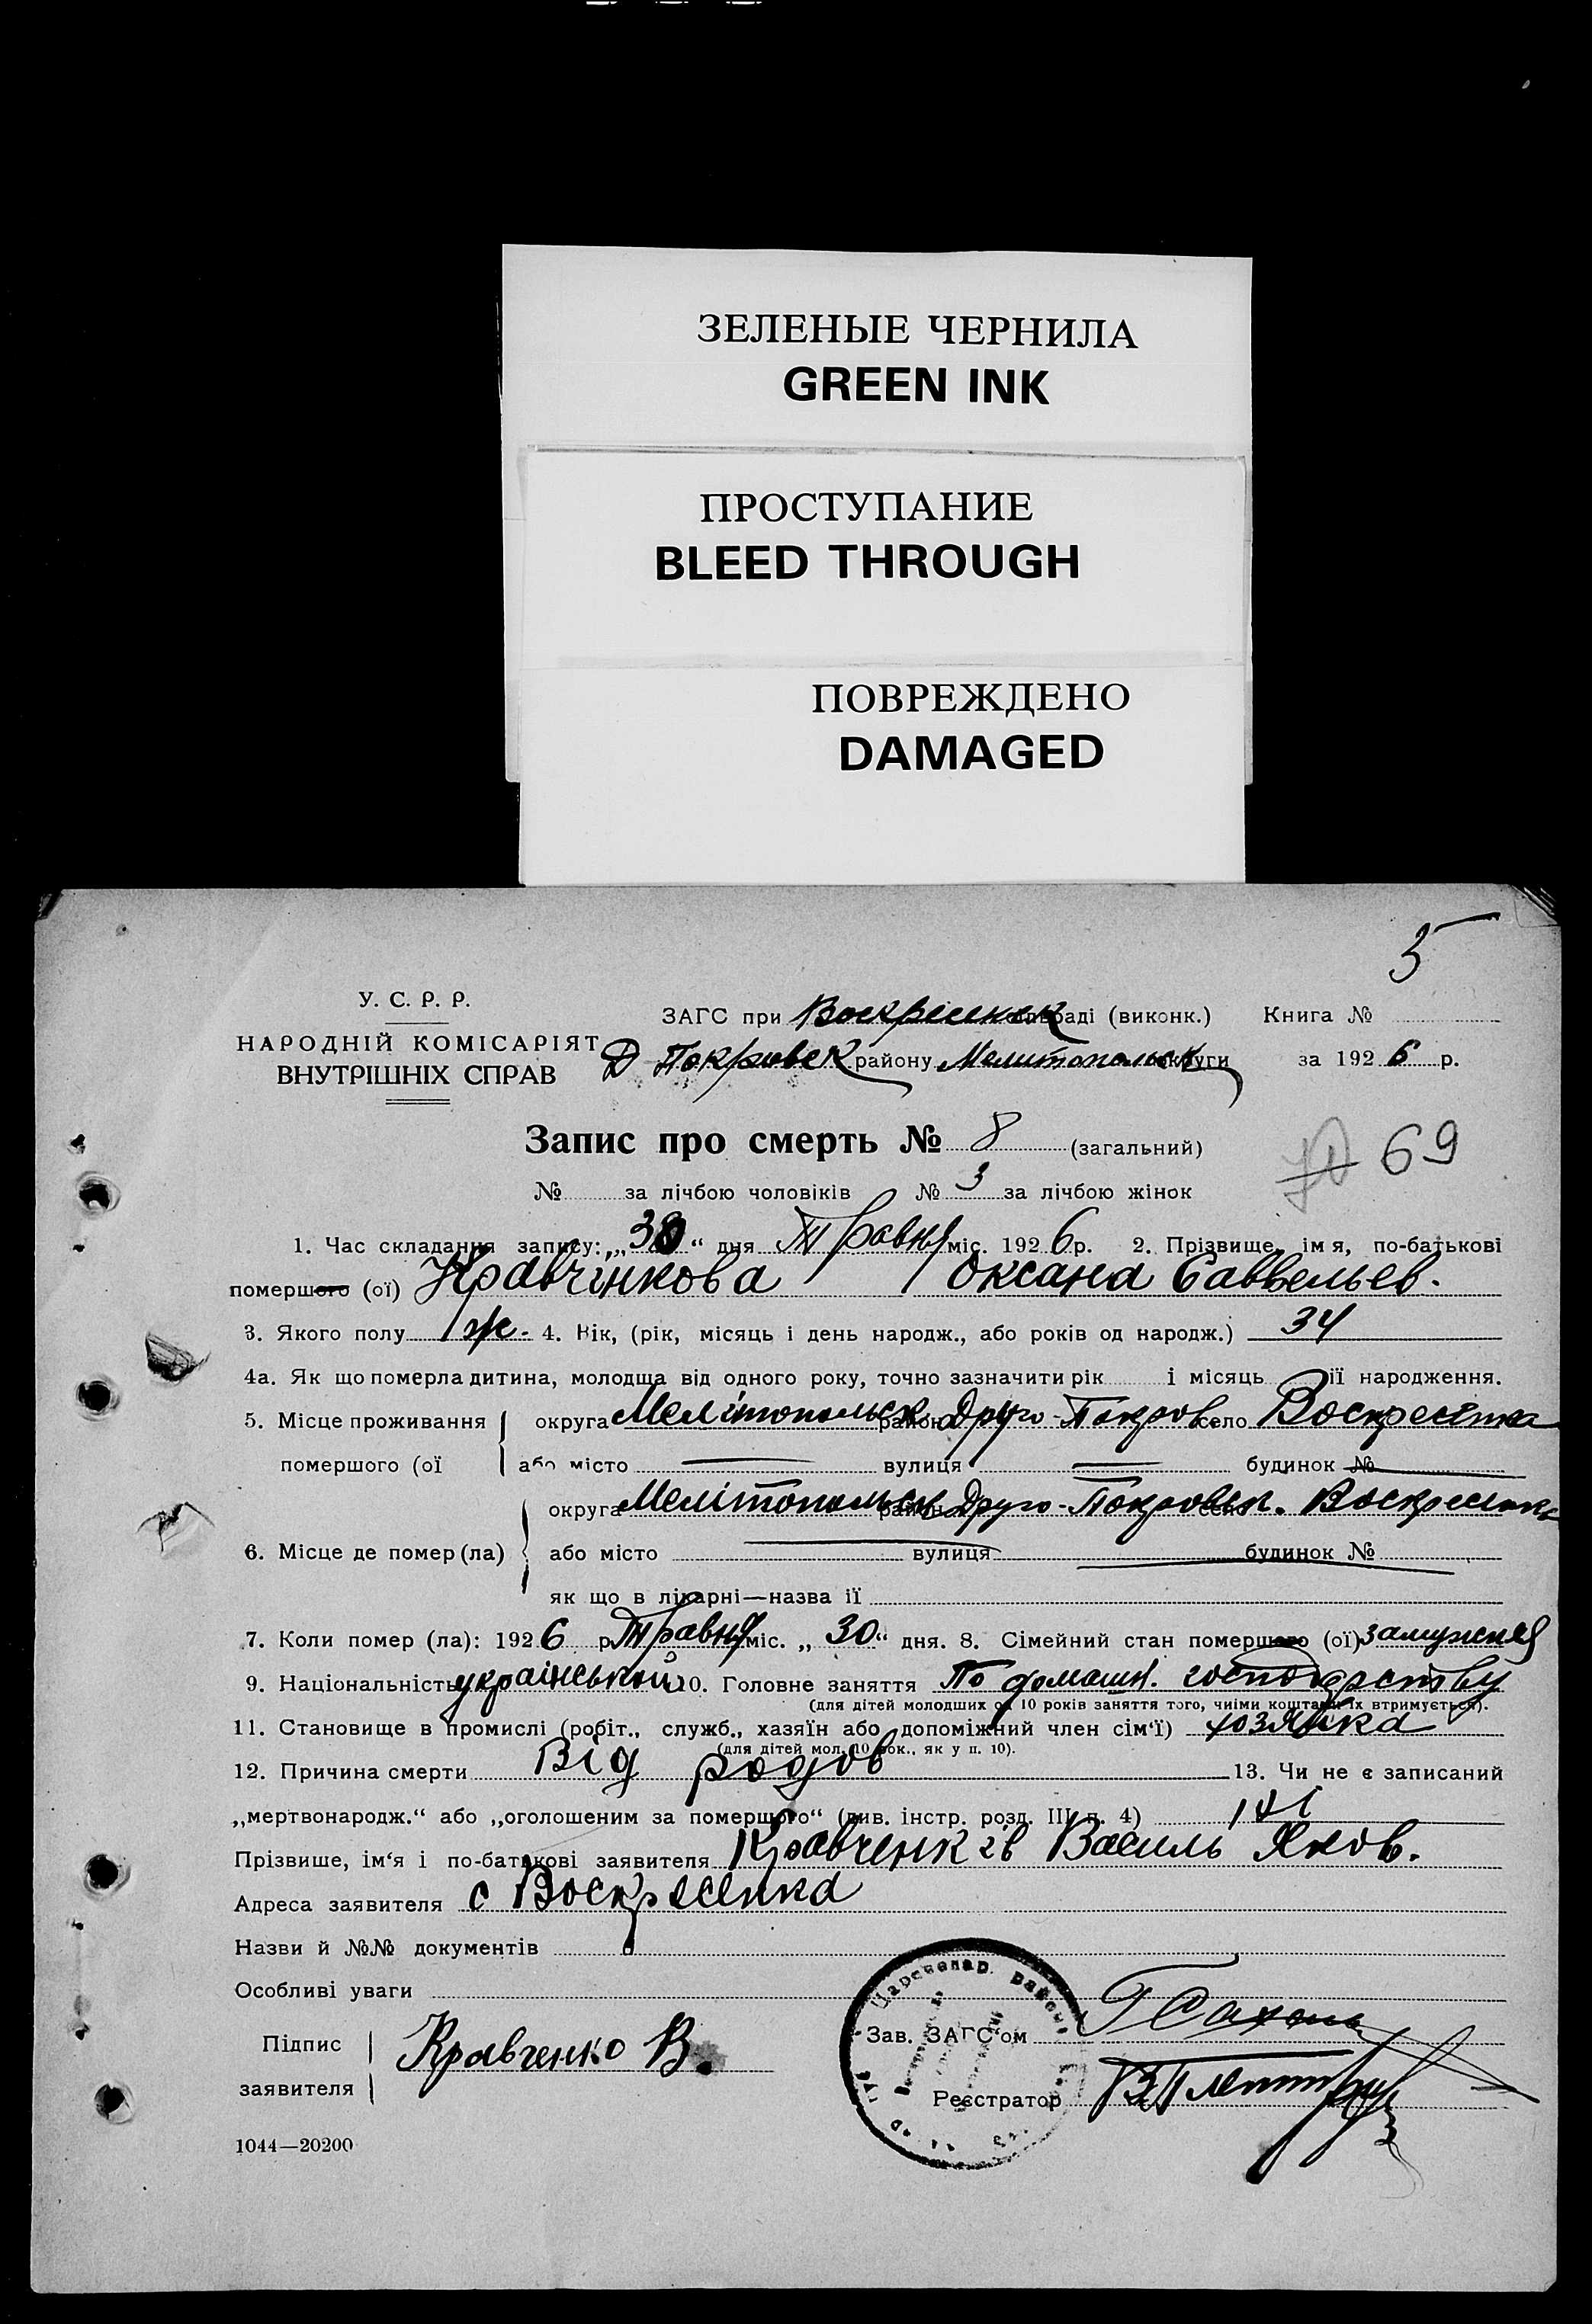 ЗЕЛЕНЫЕ ЧЕРНИЛА
GREEN INK
ПРОСТУПАНИЕ
BLEED THROUGH
ПОВРЕЖДЕНО
DAMAGED
5
У. С. Р. Р.
НАРОДНІЙ КОМІСАРІЯТ
ВНУТРІШНІХ СПРАВ
ЗАГС при Воскресенск сільраді (виконк.) Книга №
Д Покровск району Мелитопольск округи за 1926 р.
Запис про смерть № 8 (загальний)
69
№ за лічбою чоловіків № 3 за лічбою жінок
1. Час складання запису: „30“ дня Травня міс. 1926 р. 2. Прізвище, імя, по-батькові
помершого (ої) Кравчінкова Оксана Саввельев.
3. Якого полу ж. 4. Вік, (рік, місяць і день народж., або років од народж.) 34
4а. Як що померла дитина, молодща від одного року, точно зазначити рік і місяць її народження.
5. Місце проживання округа Мелітопольск район Друго-Покров село Воскресенка
помершого (ої або місто вулиця будинок №
округа Мелітопольск район Друго-Покровск. село Воскресенка
6. Місце де помер (ла) або місто вулиця будинок №
як що в лікарні—назва її
7. Коли помер (ла): 1926 р Травня міс. „30“ дня. 8. Сімейний стан помершого (ої) замужняя
9. Національність українськой 10. Головне заняття По домашн. господрству
(для дітей молодших од 10 років заняття того, чиїми коштами їх втримується).
11. Становище в промислі (робіт., служб., хазяїн або допоміжний член сім‘ї) хозяйка
(для дітей мол. 10 рок., як у п. 10).
12. Причина смерти Від родов 13. Чи не є записаний
„мертвонародж.“ або „оголошеним за помершого“ (див. інстр. розд. III п. 4) ні
Прізвише, ім‘я і по-батькові заявителя Кравченків Василь Яков.
Адреса заявителя с Воскресенка
Назви й №№ документів
Особливі уваги
Підпис
заявителя Кравченко В.
Зав. ЗАГС‘ом
Реєстратор
1044—20200